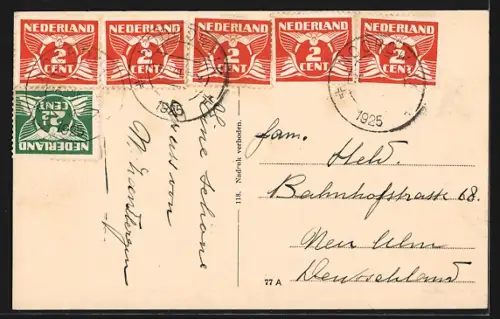 NEDERLAND NEDERLAND NEDERLAND NEDERLAND NEDERLAND
2 2 2 2 2
CENT CENT CENT CENT CENT
2½
CENT
NEDERLAND
1925
1925
Schöne
von
M.
118. Nadruk verboden.
77 A
Fam.
Held.
Bahnhofstrasse 68.
Neu Ulm
Deutschland